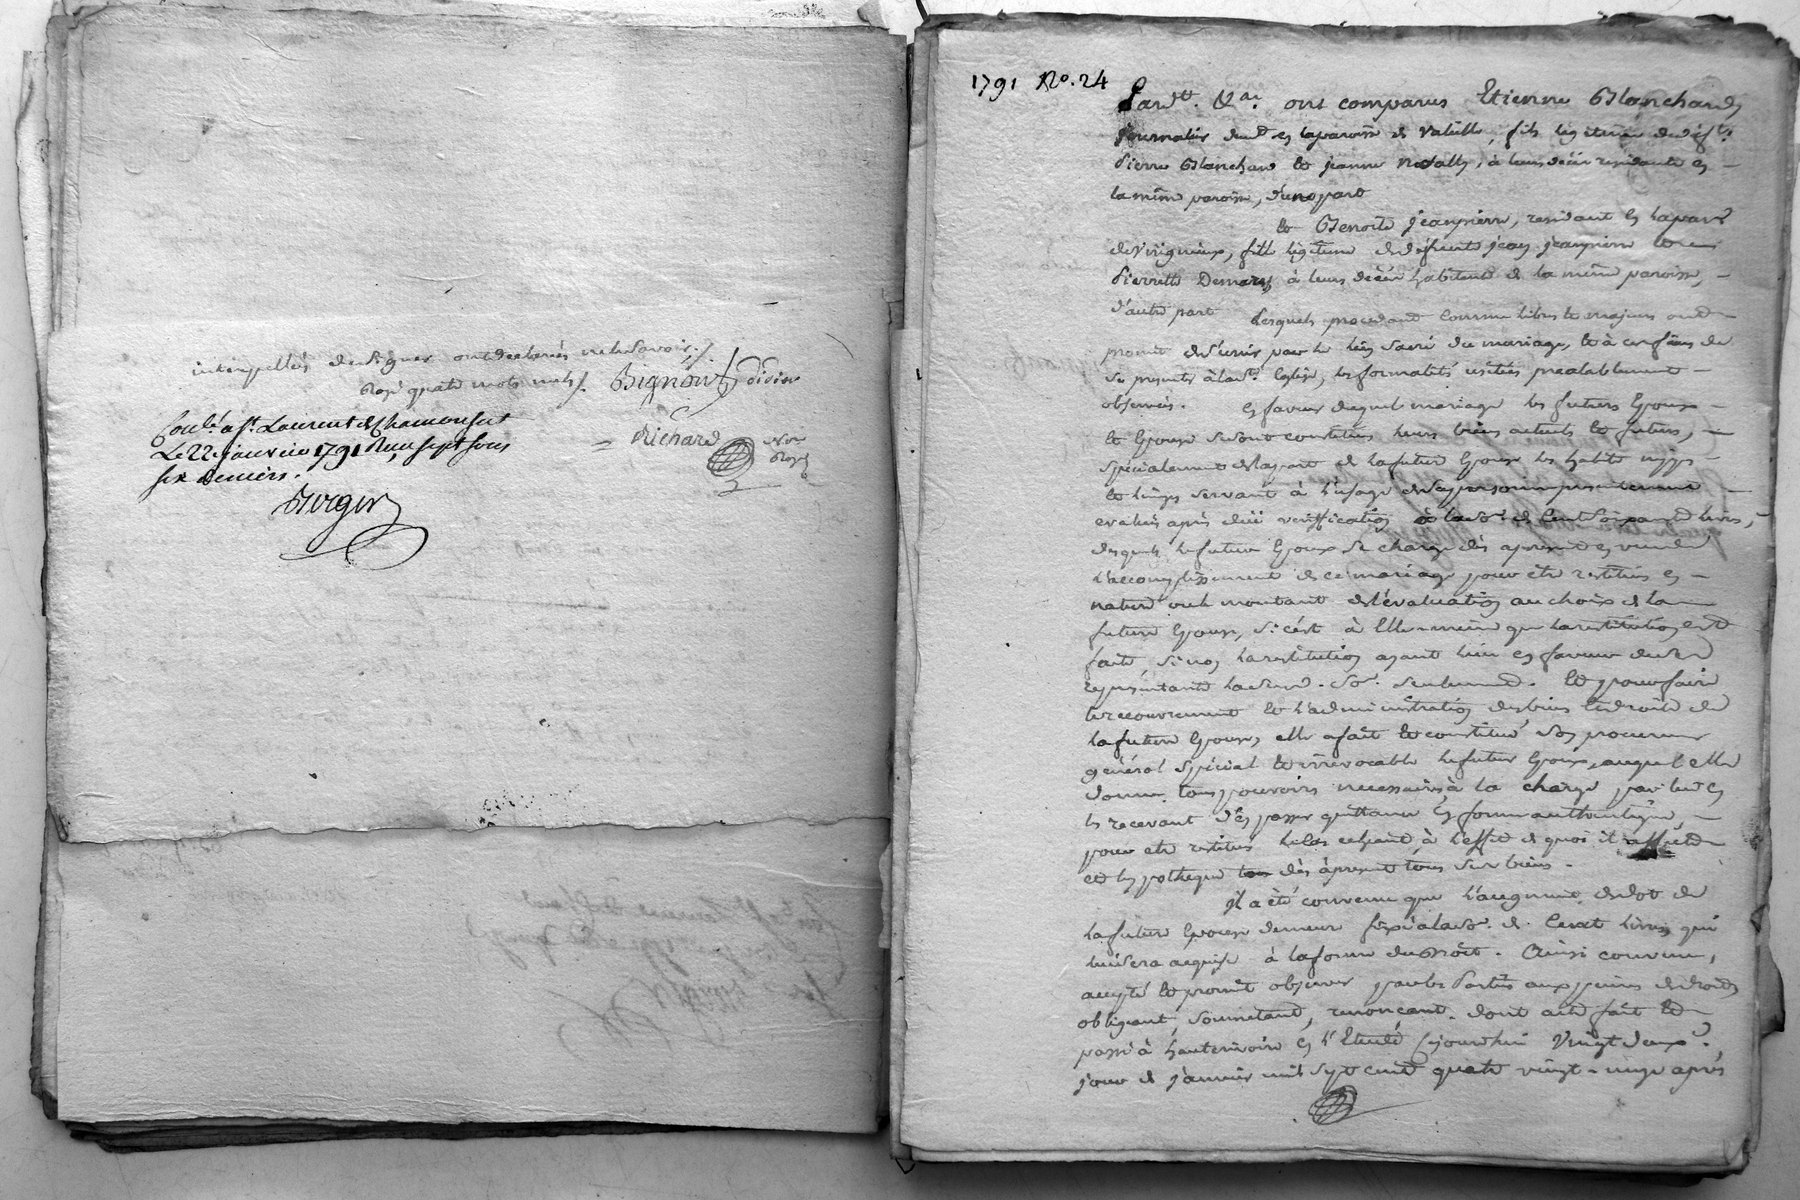 interpellés de signer ont declarés ne le savoir ./.
Rayé quatre mots nuls ./. Bignon
Conlé a St. Laurent de Chamousset
Le 22 janvier 1791 Reçu sept sous
six deniers.
Richard
Nore
Royal
Berger
1791 No. 24
Pardt. &ar. ont comparus Etienne Blanchard
journalier demt en la paroisse de Valeille, fils légitime de déft.
Pierre Blanchard et jeanne à leurs décès résidants en
la même paroisse, d'une part
et Benoite jeanpierre, residant en la parse
de Virigneux, fille légitime de défunts jean jeanpierre et
Pierrette à leurs décès habitants de la même paroisse,
d'autre part Lesquels procedant comme libres et majeurs ont
promis de s'unir par le lien sacré du mariage, et à ces fins de
se presenter à la Ste. Eglise, les formalités usitées prealablement
observées. En faveur duquel mariage les futurs Epoux
et Epouse se sont constitués leurs biens actuels et futurs,
spécialement de la part de la future Epouse les habits nipes
et linges servant à l'usage de sa personne presentement
evalués après due vérification à la so. de Cent soixante livres,
desquels le futur Epoux se charge dès apresent en vue de
l'accomplissement de ce mariage pour etre restitués en
nature ou le montant de l'évaluation au choix de la
future Epouse, si c'est à Elle-même que la restitution est
faite, si non, la restitution ayant lieu en faveur de ses
représentants lade. so. seulement. Et pour faire
le recouvrement et l'administration des biens et droits de
la future Epouse, elle a fait et constitué son procureur
général spécial et irrévocable le futur Epoux, auquel elle
donne tous pouvoirs necessaires, à la charge par lui en
les recevant d'en passer quittance en forme authentique,
pour etre restitués le cas echeant à l'effet de quoi il affecte
et hypotheque dès àpresent tous ses biens.
Il a été convenu que l'augment de dot de
la future Epouse demeure fixé à la so. de Cent livres qui
lui sera acquise à la forme du Droit. Ainsi convenu,
accepté et promis observer par les Parties aux peines de droit
obligeant, soumetant, renonçant. dont acte fait et
passé à hauterivoire en l'Etude Cejourdhui Vingt deux
jour de janvier mil sept cent quatre vingt-onze après